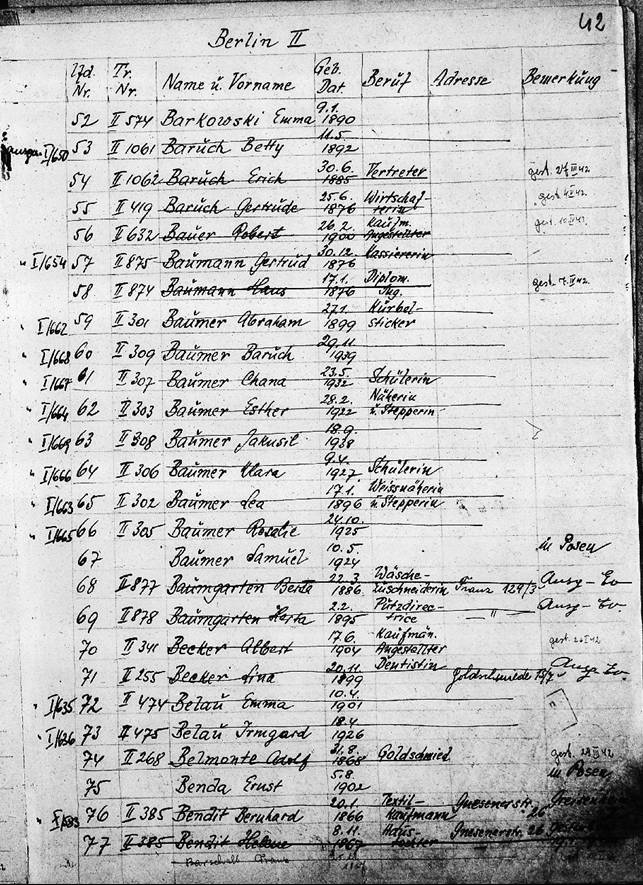 42
Berlin II
Lfd. Nr. Tr. Nr. Name u. Vorname Geb. Dat Beruf Adresse Bemerkung
52 II 574 Barkowski Emma 9.1. 1890
I/650 53 II 1061 Baruch Betty 11.5. 1892
54 II 1062 Baruch Erich 30.6. 1885 Vertreter gest.
55 II 419 Baruch Gertrude 25.6. 1876 Wirtschafterin gest.
56 II 632 Bauer Robert 26.2. 1900 Kaufm. Angestellter gest.
" I/654 57 II 875 Baumann Gertrud 30.12. 1876 Kassiererin
58 II 874 Baumann Hans 17.1. 1876 Diplom. Ing. gest.
" I/662 59 II 301 Baumer Abraham 27.1. 1899 Kurbel-sticker
" I/668 60 II 309 Baumer Baruch 29.11. 1939
" I/667 61 II 307 Baumer Chana 23.5. 1932 Schülerin
" I/664 62 II 303 Baumer Esther 28.2. 1922 Näherin u. Stepperin
" I/669 63 II 308 Baumer Jakusil 18.9. 1938
" I/666 64 II 306 Baumer Klara 9.4. 1927 Schülerin
" I/663 65 II 302 Baumer Lea 17.1. 1896 Weissnäherin u. Stepperin
" I/665 66 II 305 Baumer Rosalie 24.10. 1925
67 Baumer Samuel 10.5. 1924 in Posen
68 II 877 Baumgarten Berta 22.3. 1886 Wäsche-zuschneiderin Franz 129/3 Ausg - Ev
69 II 878 Baumgarten Herta 2.2. 1895 Putzdirec-trice " Ausg - Ev.
70 II 341 Becker Albert 17.6. 1904 Kaufmän. Angestellter gest.
71 II 255 Becker Lina 20.11. 1899 Dentistin Ausg Ev.
" I/635 72 II 474 Belau Emma 10.4. 1901
" I/636 73 II 475 Belau Irmgard 18.4. 1926
74 II 268 Belmonte Adolf 31.8. 1868 Goldschmied gest.
75 Benda Ernst 5.8. 1902 in Posen
76 II 385 Bendit Bernhard 20.1. 1866 Textil-kaufmann Gnesenerstr. 26
77 II 385 Bendit Helene 8.11. 1867 Haus-tochter Gnesenerstr. 26